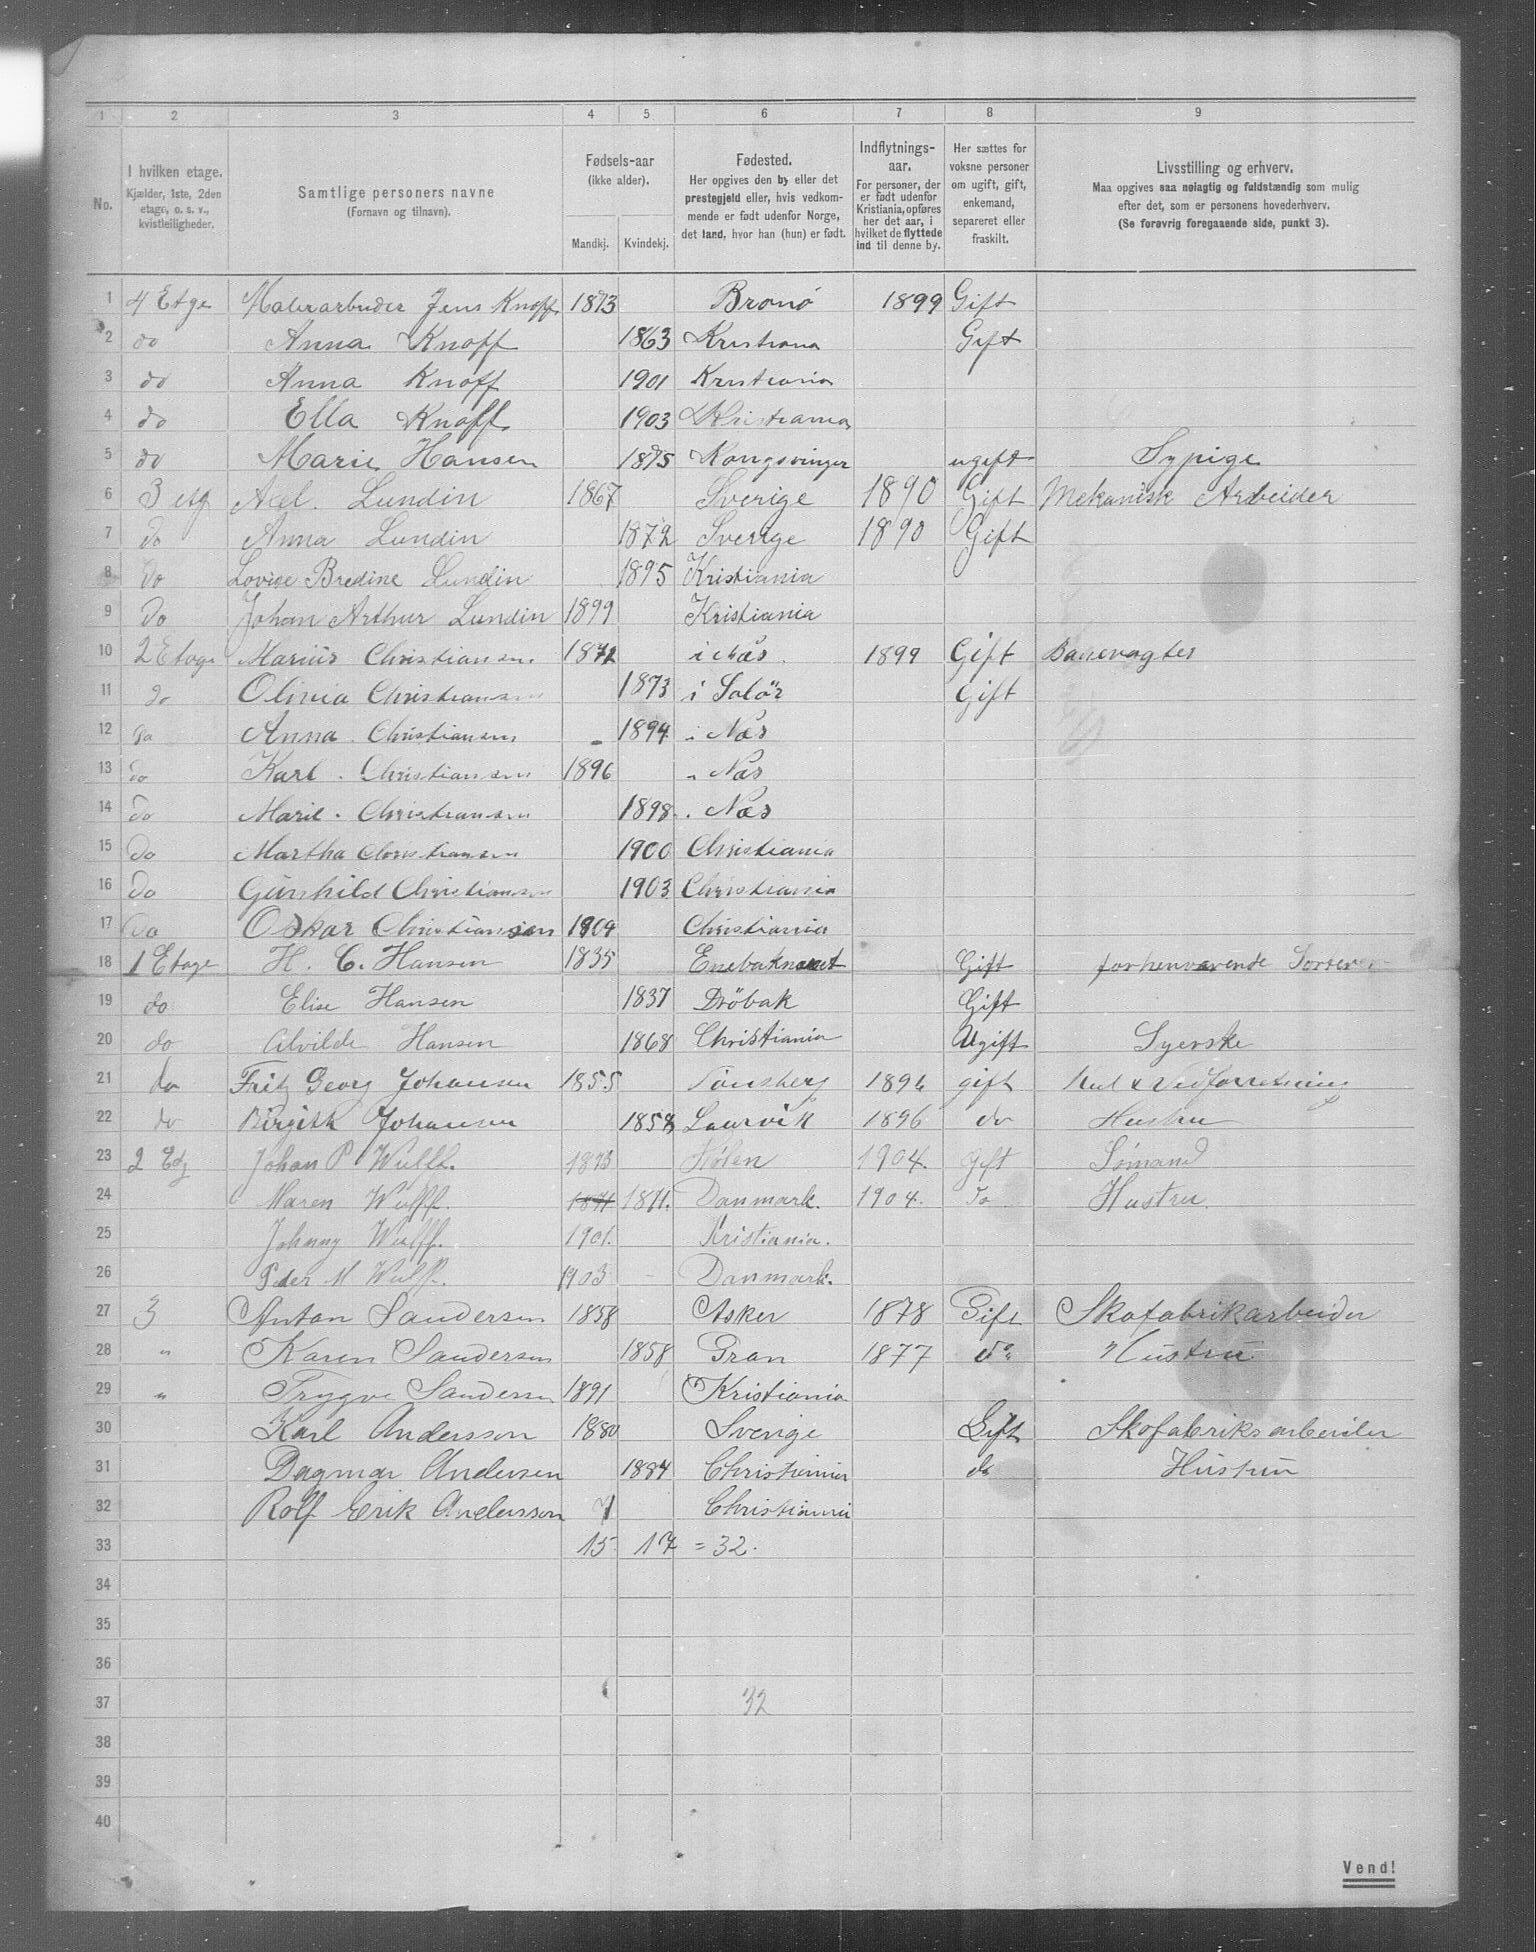 1 2 3 4 5 6 7 8 9
No.
I hvilken etage.
Kjælder, 1ste, 2den etage, o. s. v., kvistleiligheder.
Samtlige personers navne
(Fornavn og tilnavn).
Fødsels-aar
(ikke alder).
Mandkj. Kvindekj.
Fødested.
Her opgives den by eller det prestegjeld eller, hvis vedkommende er født udenfor Norge, det land, hvor han (hun) er født.
Indflytnings-aar.
For personer, der er født udenfor Kristiania, opføres her det aar, i hvilket de flyttede ind til denne by.
Her sættes for voksne personer om ugift, gift, enkemand, separeret eller fraskilt.
Livsstilling og erhverv.
Maa opgives saa nøiagtig og fuldstændig som mulig efter det, som er personens hovederhverv.
(Se forøvrig foregaaende side, punkt 3).
1 4 Etge Malerarbeider Jens Knoff 1873 Bronø 1899 Gift
2 do Anna Knoff 1863 Kristiana Gift
3 do Anna Knoff 1901 Kristiania
4 do Ella Knoff 1903 Khristiania
5 do Marie Hansen 1875 Kongsvinger ugift Sypige
6 3 etg Axel. Lundin 1867 Sverige 1890 Gift Mekanisk Arbeider
7 do Anna Lundin 1872 Sverige 1890 Gift
8 do Lovise Bredine Lundin 1895 Kristiania
9 do Johan Arthur Lundin 1899 Kristiania
10 2 Etage Marius Christiansen 1872 i Næs. 1899 Gift Banevagter
11 do Olivia Christiansen 1873 i Solör Gift
12 do Anna Christiansen 1894 i Næs
13 do Karl Christiansen 1896 " Næs
14 do Marie Christiansen 1898 " Næs
15 do Martha Christiansen 1900 Christiania
16 do Gunhild Christiansen 1903 Christiania
17 do Oskar Christiansen 1904 Christiania
18 1 Etage H. C. Hansen 1835 Gift forhenværende
19 do Elise Hansen 1837 Dröbak Gift
20 do Alvilde Hansen 1868 Christiania Ugift Syerske
21 do Fritz Georg Johansen 1855 Tönsberg 1896 gift Kul & Vedforretning
22 do Birgith Johansen 1858 Laurvik 1896 do Hustru
23 2 Etg Johan P Wulff. 1873 Hølen 1904. Gift Sömand
24 Maren Wulff. 1871 1871. Danmark. 1904. do Hustru.
25 Johnny Wulff. 1901. Kristiania.
26 Peder M Wulff. 1903 Danmark.
27 3 Anton Sandersen 1858 Asker 1878 Gift Skofabrikarbeider
28 " Karen Sandersen 1858 Gran 1877 do Hustru
29 " Trygve Sandersen 1891 Kristiania
30 Karl Andersson 1880 Sverige Gift Skofabriksarbeider
31 Dagmar Andersen 1884 Christiania do Hustru
32 Rolf Erik Andersson Christiania
33 15 17 = 32.
34
35
36
37 32
38
39
40
Vend!